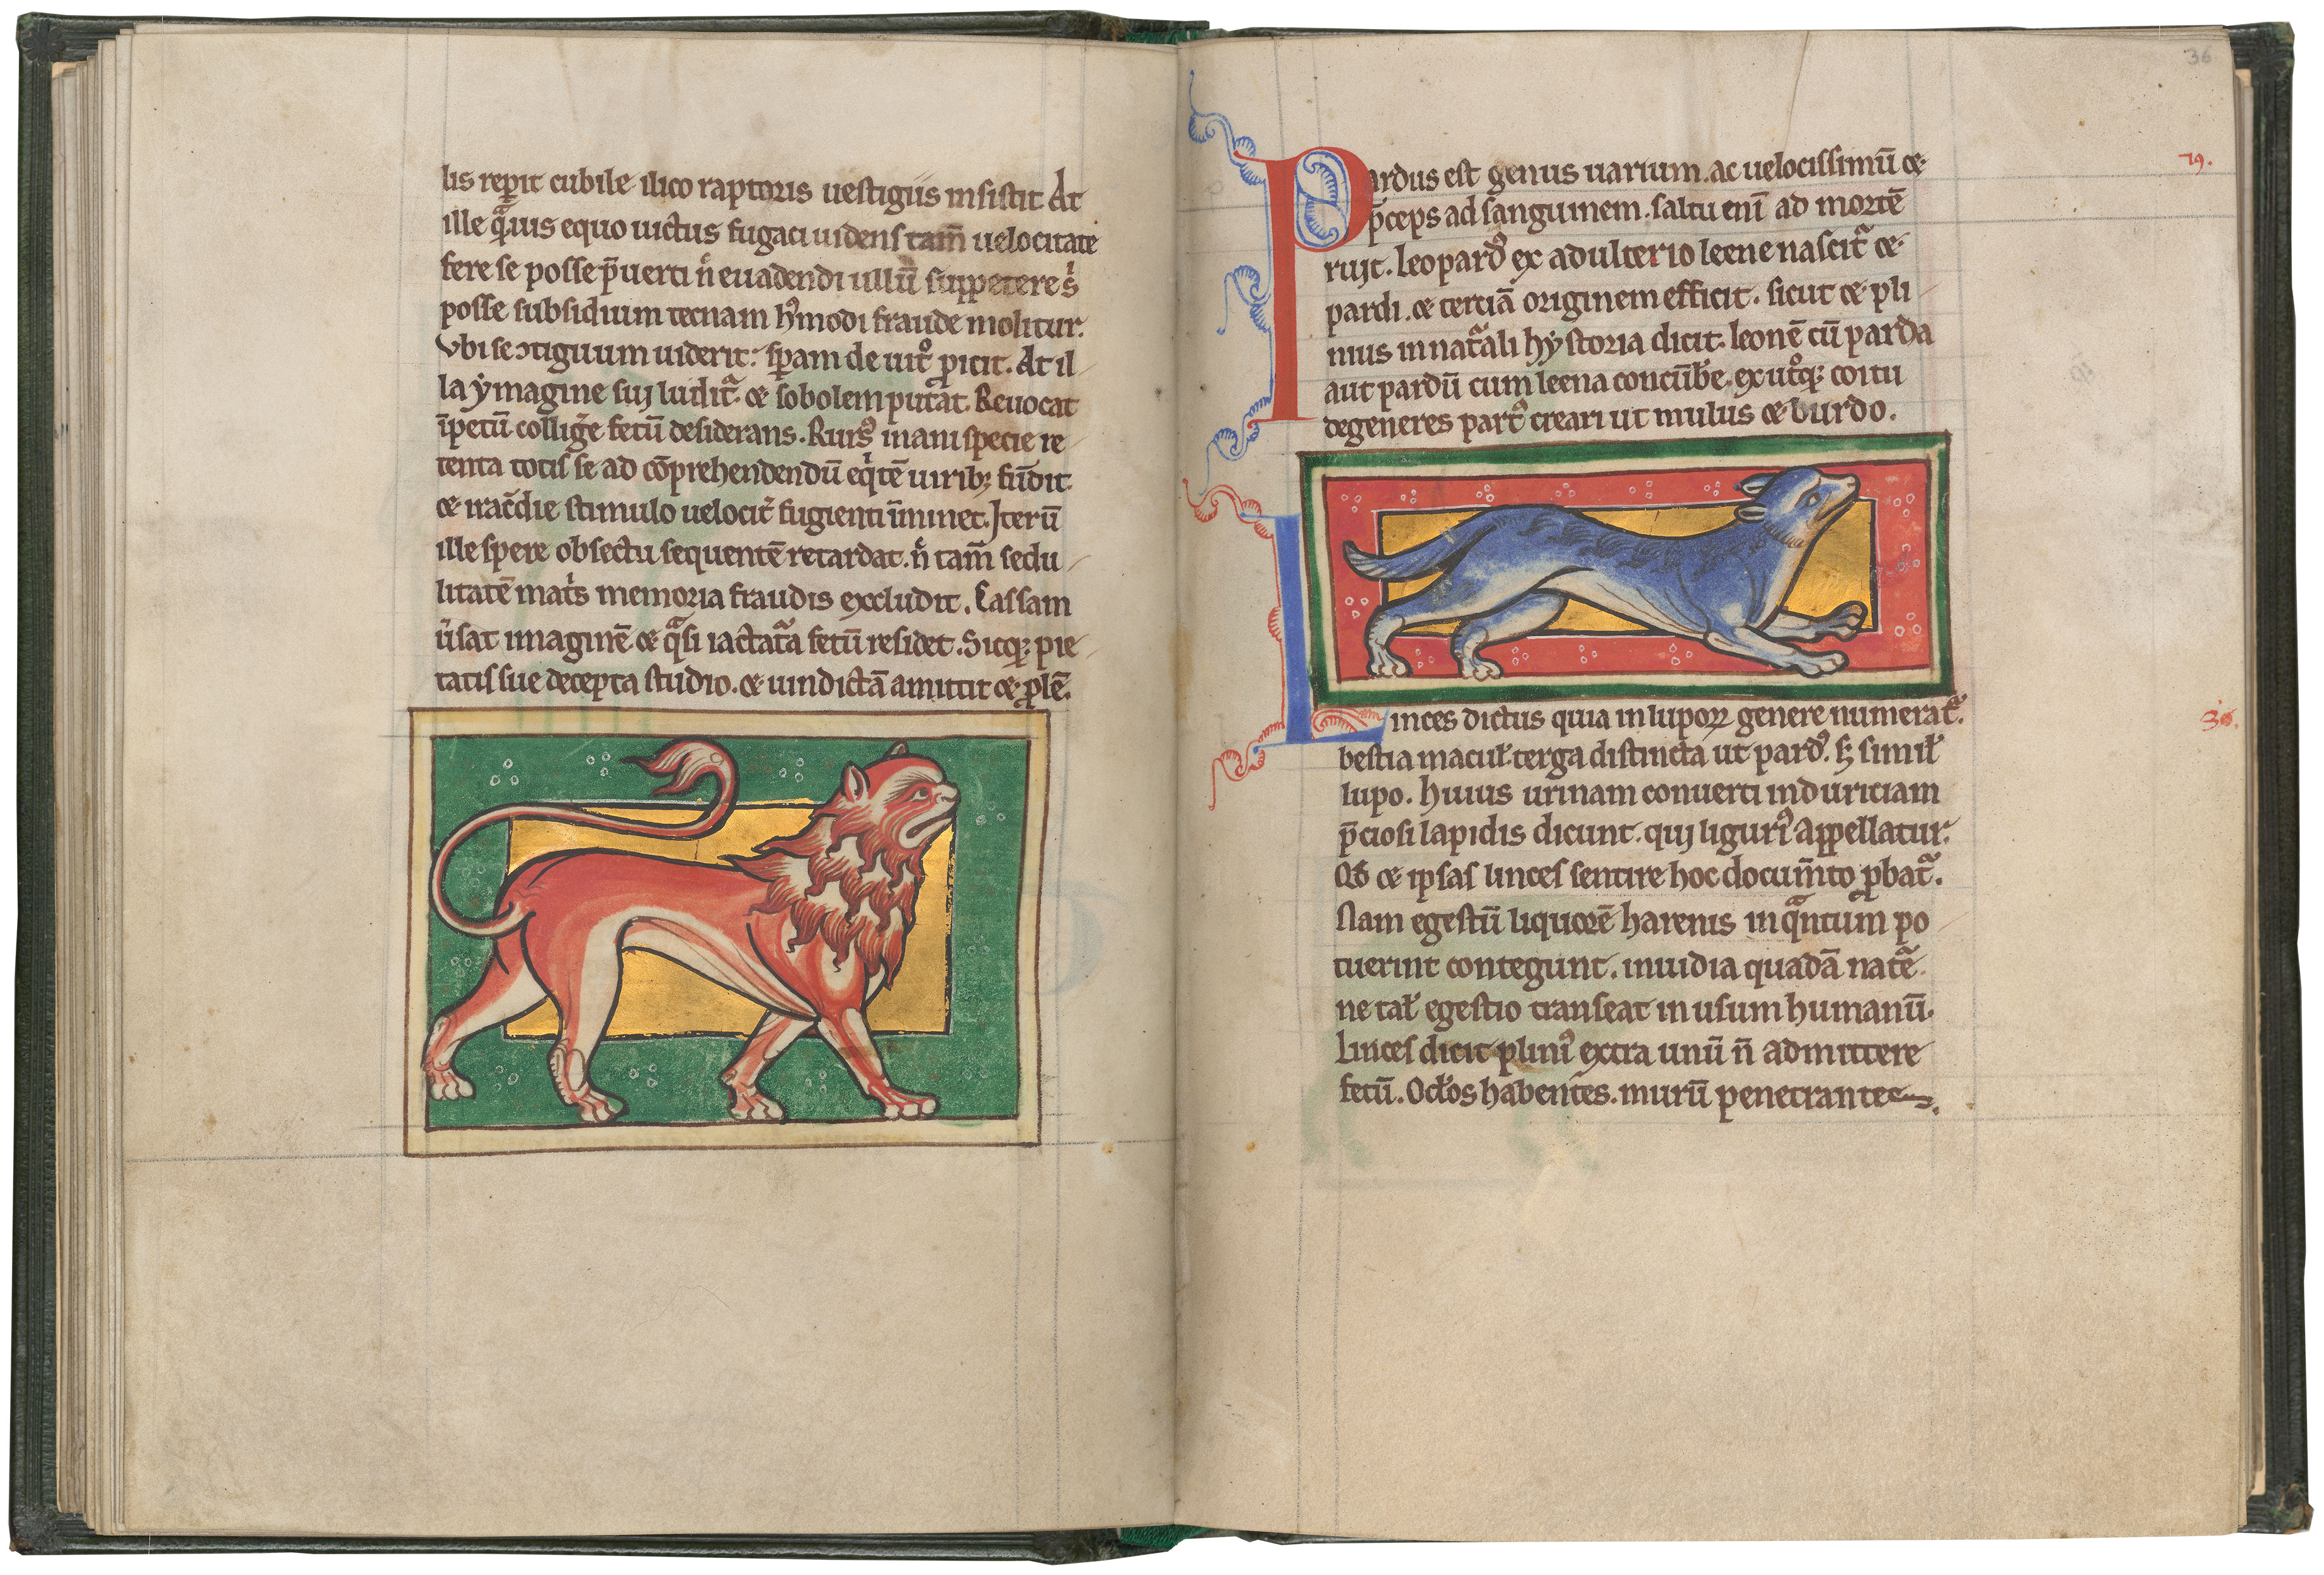 lis repit cubile ilico raptoris uestigiis insistit At
ille qᵃuis equo uictus fugaci uidens tam̄ uelocitate
fere se posse p̄uerti n̊ euadendi ullū suppetere sⁱ
posse subsidium tecnam hꝰmodi fraude molitur.
Vbi se ↄtiguum uiderit: speram de uitº ꝓicit. At il
la ẏmagine suj luditᵃ ⁊ sobolem putat. Reuocat
īpetū colligᵉe fetū desiderans. Rursꝰ inani specie re
tenta totis se ad cōprehendendū eqⁱtē uiribꝫ fūdit.
⁊ irac̄die stimulo uelocitᵉ fugienti īminet. Jterū
ille spere obiectu sequentē retardat. n̊ tam̄ sedu
litatē matⁱs memoria fraudis excludit. Cassam
ūsat imaginē ⁊ qᵃsi lactatᵃa fetū residet. Sicqꝫ pie
tatis sue decepta studio. ⁊ uindictā amittit ⁊ ꝓlē.
36
Pardus est genus uarium. ac uelocissimū ⁊
79.
p̄ceps ad sanguinem. saltu enī ad mortē
ruit. Leopardꝰ ex adulterio leene nascitᵃ ⁊
pardi. ⁊ terciā originem efficit. sicut ⁊ pli
nius in natᵃali hẏstoria dicit. leonē cū parda
aut pardū cum leena concūbᵉe. ex utºqꝫ coitu
degeneres partꝰ creari ut mulus ⁊ burdo.
Linces dictus quia in lupoꝝ genere numeratᵃ.
30.
bestia macul̵ terga distincta ut pardꝰ. sꝫ simil̵
lupo. huius urinam conuerti in duriciam
p̄ciosi lapidis dicunt. quj liguriꝰ appellatur.
Qd̄ ⁊ ipsas linces sentire hoc docum̄to ꝓbatᵃ.
Nam egestū liquorē harenis in qᵃntum po
tuerint contegunt. inuidia quadā natᵉ.
ne tal̵ egestio transeat in usum humanū.
Linces dicit pliniꝰ extra unū n̄ admittere
fetū. Ocl̵os habentes. murū penetrantes.